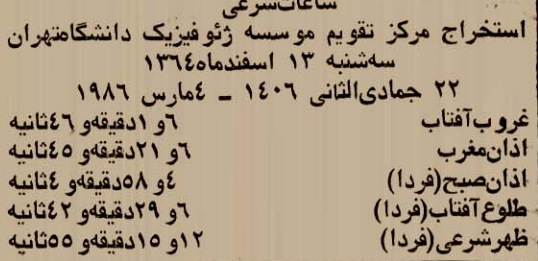 ساعات شرعی
استخراج مرکز تقویم موسسه ژئوفیزیک دانشگاه تهران
سه‌شنبه ۱۳ اسفندماه ۱۳٦٤
۲۲ جمادی‌الثانی ۱٤۰٦ ـ ٤ مارس ۱۹۸٦
غروب آفتاب ٦و ۱دقیقه‌و ٤٦ثانیه
اذان مغرب ٦و ۲۱دقیقه‌و ٤٥ثانیه
اذان صبح (فردا) ٤و ٥۸دقیقه‌و ٤ثانیه
طلوع آفتاب (فردا) ٦و ۲۹دقیقه‌و ٤۲ثانیه
ظهر شرعی (فردا) ۱۲و ۱٥دقیقه‌و ٥٥ثانیه